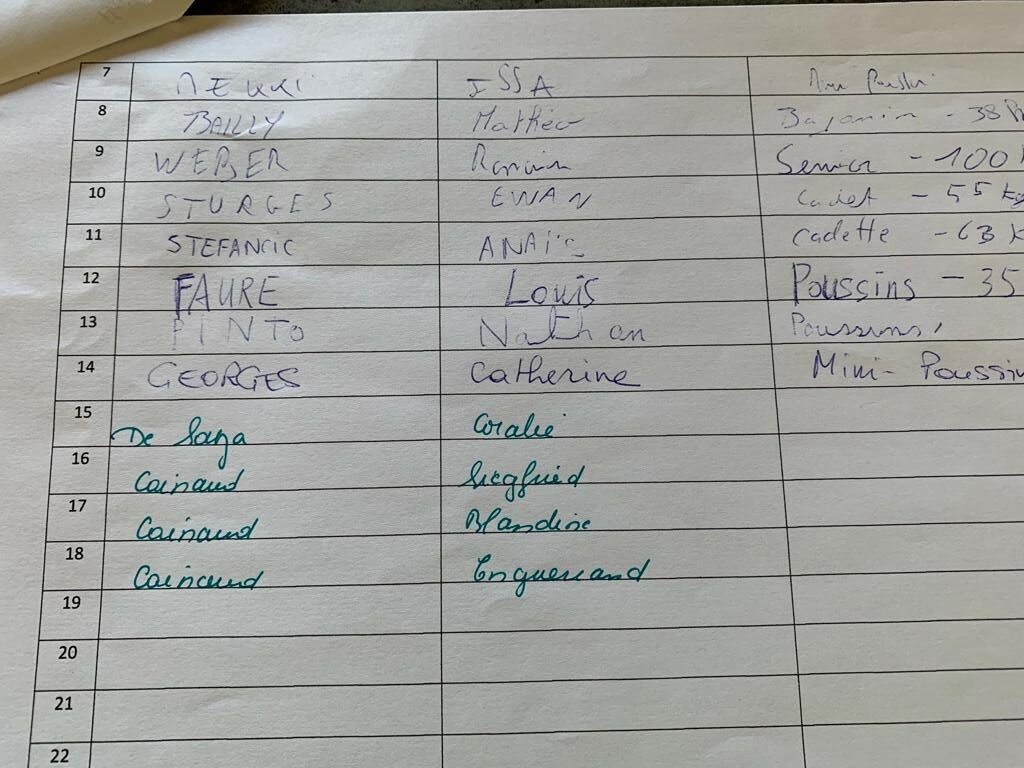 7 MEKKI ISSA Mini Poussin
8 BAILLY Mathéo Benjamin - 38
9 WEBER Romain Senior - 100 k
10 STURGES EWAN Cadet - 55 kg
11 STEFANCIC ANAÏS Cadette - 63 k
12 FAURE Louis Poussins - 35
13 PINTO Nathan Poussins,
14 GEORGES Catherine Mini- Poussin
15 De Coralie
16 Cainaud Siegfried
17 Cainaud Blandine
18 Cainaud Enguerrand
19
20
21
22